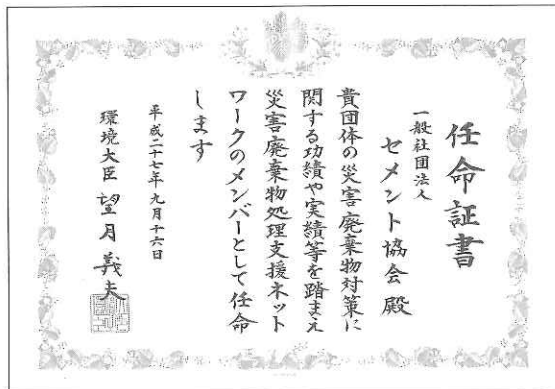 任命証書
一般社団法人
セメント協会 殿
貴団体の災害廃棄物対策に
関する功績や実績等を踏まえ
災害廃棄物処理支援ネット
ワークのメンバーとして任命
します
平成二十七年九月十六日
環境大臣 望月義夫